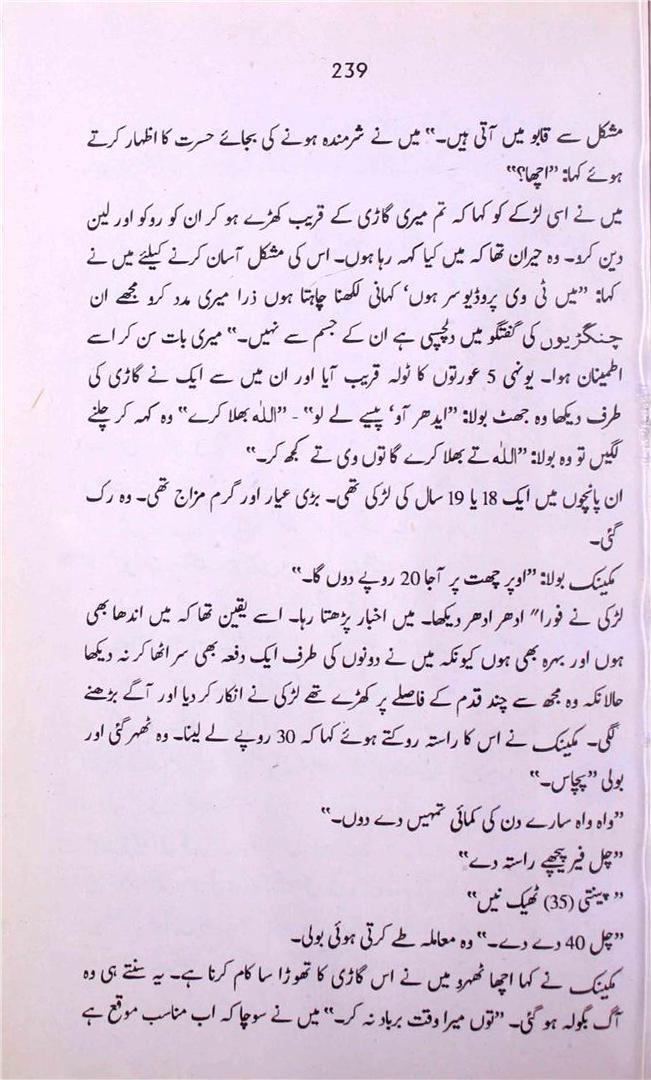 239
مشکل سے قابو میں آتی ہیں۔“ میں نے شرمندہ ہونے کی بجائے حسرت کا اظہار کرتے
ہوئے کہا: ”اچھا؟“
میں نے اسی لڑکے کو کہا کہ تم میری گاڑی کے قریب کھڑے ہو کر ان کو روکو اور لین
دین کرو۔ وہ حیران تھا کہ میں کیا کہہ رہا ہوں۔ اس کی مشکل آسان کرنے کیلئے میں نے
کہا: ”میں ٹی وی پروڈیوسر ہوں‘ کہانی لکھنا چاہتا ہوں ذرا میری مدد کرو مجھے ان
چنگڑیوں کی گفتگو میں دلچسپی ہے ان کے جسم سے نہیں۔“ میری بات سن کر اسے
اطمینان ہوا۔ یونہی 5 عورتوں کا ٹولہ قریب آیا اور ان میں سے ایک نے گاڑی کی
طرف دیکھا وہ جھٹ بولا: ”ایدھر آو‘ پیسے لے لو“ - ”اللہ بھلا کرے“ وہ کہہ کر چلنے
لگیں تو وہ بولا: ”اللہ تے بھلا کرے گا توں وی تے کجھ کر۔“
ان پانچوں میں ایک 18 یا 19 سال کی لڑکی تھی۔ بڑی عیار اور گرم مزاج تھی۔ وہ رک
گئی۔
مکینک بولا: ”اوپر چھت پر آجا 20 روپے دوں گا۔“
لڑکی نے فورا″ ادھر ادھر دیکھا۔ میں اخبار پڑھتا رہا۔ اسے یقین تھا کہ میں اندھا بھی
ہوں اور بہرہ بھی ہوں کیونکہ میں نے دونوں کی طرف ایک دفعہ بھی سر اٹھا کر نہ دیکھا
حالانکہ وہ مجھ سے چند قدم کے فاصلے پر کھڑے تھے لڑکی نے انکار کر دیا اور آگے بڑھنے
لگی۔ مکینک نے اس کا راستہ روکتے ہوئے کہا کہ 30 روپے لے لینا۔ وہ ٹھہر گئی اور
بولی ”پچاس۔“
”واہ واہ سارے دن کی کمائی تمہیں دے دوں۔“
”چل فیر پیچھے راستہ دے“
”پینتی (35) ٹھیک نیں“
”چل 40 دے دے۔“ وہ معاملہ طے کرتی ہوئی بولی۔
مکینک نے کہا اچھا ٹھہرو میں نے اس گاڑی کا تھوڑا سا کام کرنا ہے۔ یہ سنتے ہی وہ
آگ بگولہ ہو گئی۔ ”توں میرا وقت برباد نہ کر۔“ میں نے سوچا کہ اب مناسب موقع ہے